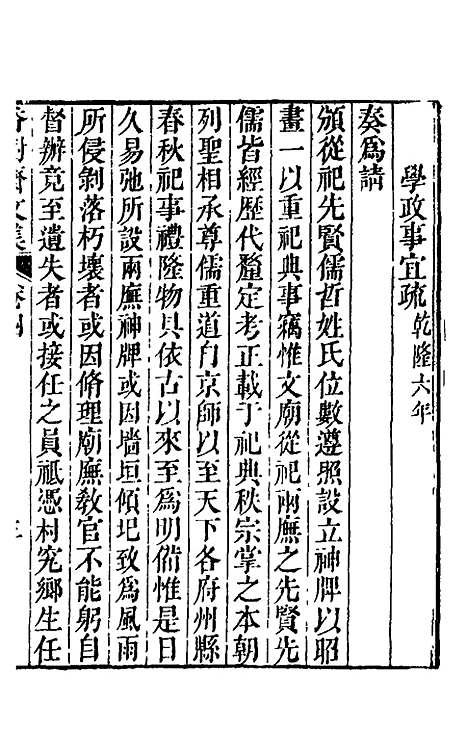 學政事宜疏乾隆六年
奏爲請
頒從祀先賢儒哲姓氏位數遵照設立神牌以昭
畫一以重祀典事竊惟文廟從祀兩廡之先賢先
儒皆經歷代釐定考正載于祀典秩宗掌之本朝
列聖相承尊儒重道自京師以至天下各府州縣
春秋祀事禮隆物具依古以來至爲明備惟是日
久易弛所設兩廡神牌或因墻垣傾圮致爲風雨
所侵剝落朽壞者或因脩理廟廡教官不能躬自
督辦竟至遺失者或接任之員祗憑村究鄉生任
文集 卷四 三